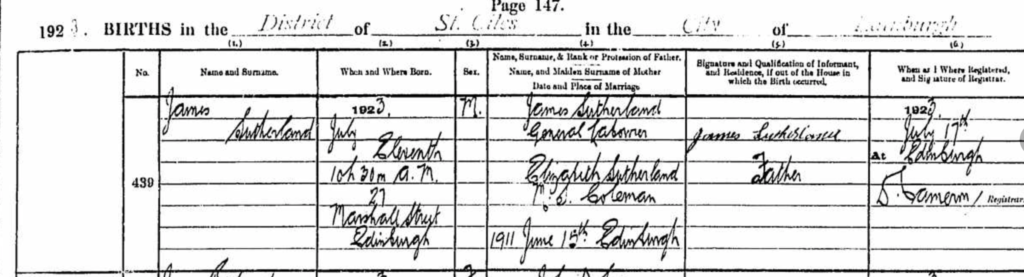 Page 147.
1923. BIRTHS in the District of St. Giles in the City of Edinburgh
(1.) (2.) (3.) (4.) (5.) (6.)
No.
Name and Surname.
When and Where Born.
Sex.
Name, Surname, & Rank or Profession of Father.
Name, and Maiden Surname of Mother
Date and Place of Marriage
Signature and Qualification of Informant,
and Residence, if out of the House in
which the Birth occurred.
When and Where Registered,
and Signature of Registrar.
439
James
Sutherland
1923,
July
Eleventh
10h 30m A.M.
27
Marshall Street
Edinburgh
M.
James Sutherland
General Labourer
Elizabeth Sutherland
M.S. Coleman
1911 June 15th Edinburgh
James Sutherland
Father
1923,
July 17th
At Edinburgh
Cameron / Registrar